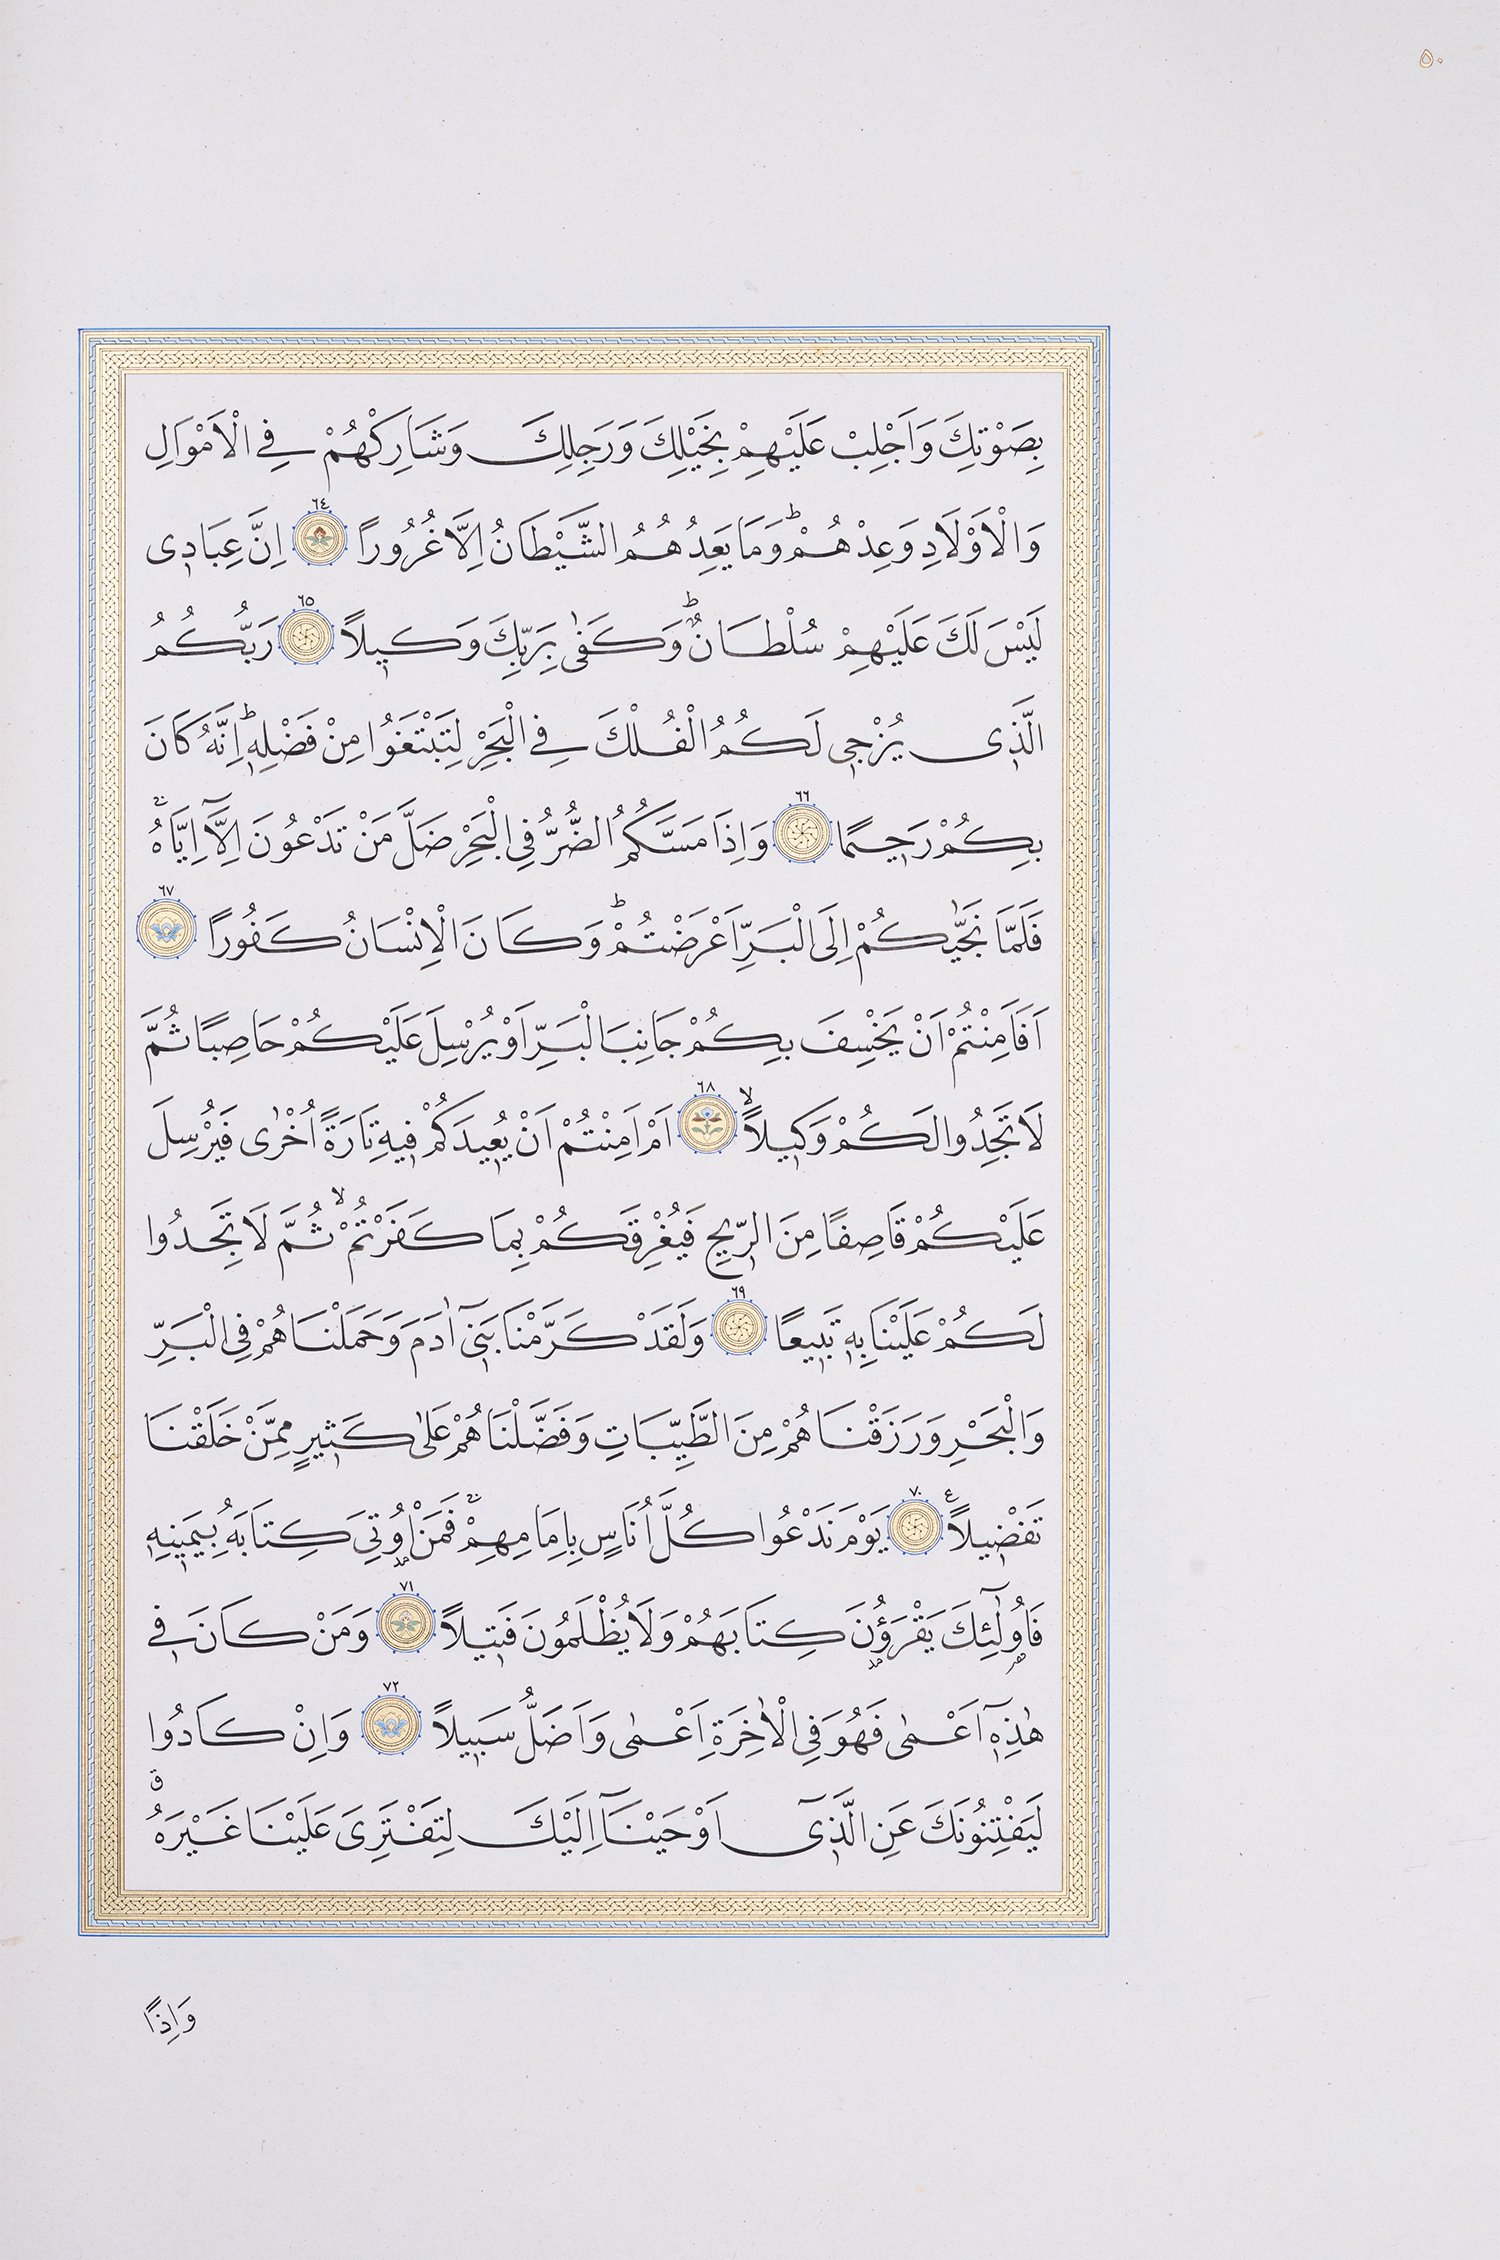 ٥٠
بِصَوْتِكَ وَاَجْلِبْ عَلَيْهِمْ بِخَيْلِكَ وَرَجِلِكَ وَشَارِكْهُمْ فِي الْاَمْوَالِ
وَالْاَوْلَادِ وَعِدْهُمْۜ وَمَا يَعِدُهُمُ الشَّيْطَانُ اِلَّا غُرُورًا ٦٤ اِنَّ عِبَادٖى
لَيْسَ لَكَ عَلَيْهِمْ سُلْطَانٌؕ وَكَفٰى بِرَبِّكَ وَكٖيلاً ٦٥ رَبُّكُمُ
الَّذٖى يُزْجٖى لَكُمُ الْفُلْكَ فِي الْبَحْرِ لِتَبْتَغُوا مِنْ فَضْلِهٖؕ اِنَّهُ كَانَ
بِكُمْ رَحٖيمًا ٦٦ وَاِذَا مَسَّكُمُ الضُّرُّ فِي الْبَحْرِ ضَلَّ مَنْ تَدْعُونَ اِلَّٓا اِيَّاهُۚ
فَلَمَّا نَجّٰيكُمْ اِلَى الْبَرِّ اَعْرَضْتُمْؕ وَكَانَ الْاِنْسَانُ كَفُورًا ٦٧
اَفَاَمِنْتُمْ اَنْ يَخْسِفَ بِكُمْ جَانِبَ الْبَرِّ اَوْ يُرْسِلَ عَلَيْكُمْ حَاصِبًا ثُمَّ
لَا تَجِدُوا لَكُمْ وَكٖيلاًۙ ٦٨ اَمْ اَمِنْتُمْ اَنْ يُعٖيدَكُمْ فٖيهِ تَارَةً اُخْرٰى فَيُرْسِلَ
عَلَيْكُمْ قَاصِفًا مِنَ الرّٖيحِ فَيُغْرِقَكُمْ بِمَا كَفَرْتُمْۙ ثُمَّ لَا تَجِدُوا
لَكُمْ عَلَيْنَا بِهٖ تَبٖيعًا ٦٩ وَلَقَدْ كَرَّمْنَا بَنٖٓى اٰدَمَ وَحَمَلْنَاهُمْ فِي الْبَرِّ
وَالْبَحْرِ وَرَزَقْنَاهُمْ مِنَ الطَّيِّبَاتِ وَفَضَّلْنَاهُمْ عَلٰى كَثٖيرٍ مِمَّنْ خَلَقْنَا
تَفْضٖيلاًࣖ ٧٠ يَوْمَ نَدْعُوا كُلَّ اُنَاسٍ بِاِمَامِهِمْۚ فَمَنْ اُو۫تِىَ كِتَابَهُ بِيَمٖينِهٖ
فَاُو۬لٰٓئِكَ يَقْرَؤُ۫نَ كِتَابَهُمْ وَلَا يُظْلَمُونَ فَتٖيلاً ٧١ وَمَنْ كَانَ فٖى
هٰذِهٖٓ اَعْمٰى فَهُوَ فِي الْاٰخِرَةِ اَعْمٰى وَاَضَلُّ سَبٖيلاً ٧٢ وَاِنْ كَادُوا
لَيَفْتِنُونَكَ عَنِ الَّذٖٓى اَوْحَيْنَٓا اِلَيْكَ لِتَفْتَرِىَ عَلَيْنَا غَيْرَهُࣗ
وَاِذًا